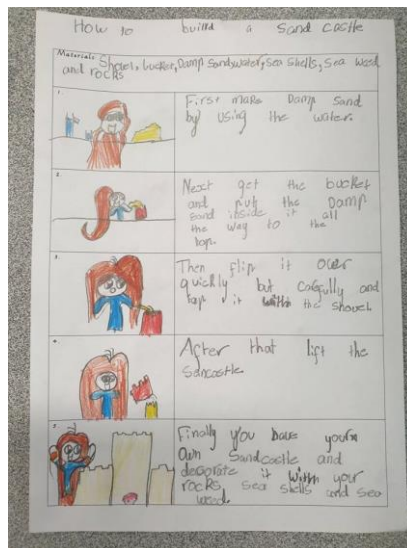 How to build a Sand castle
Materials: Shovel, bucket, Damp Sand, water, sea shells, Sea weed
and rocks
1.
First make Damp sand
by using the water.
2.
Next get the bucket
and put the Damp
sand inside it all
the way to the
top.
3.
Then flip it over
quickly but carefully and
tap it with the shovel.
4.
After that lift the
Sancastle
5.
Finally you have your
own Sandcastle and
decorate it with your
rocks, sea shells and sea
weed